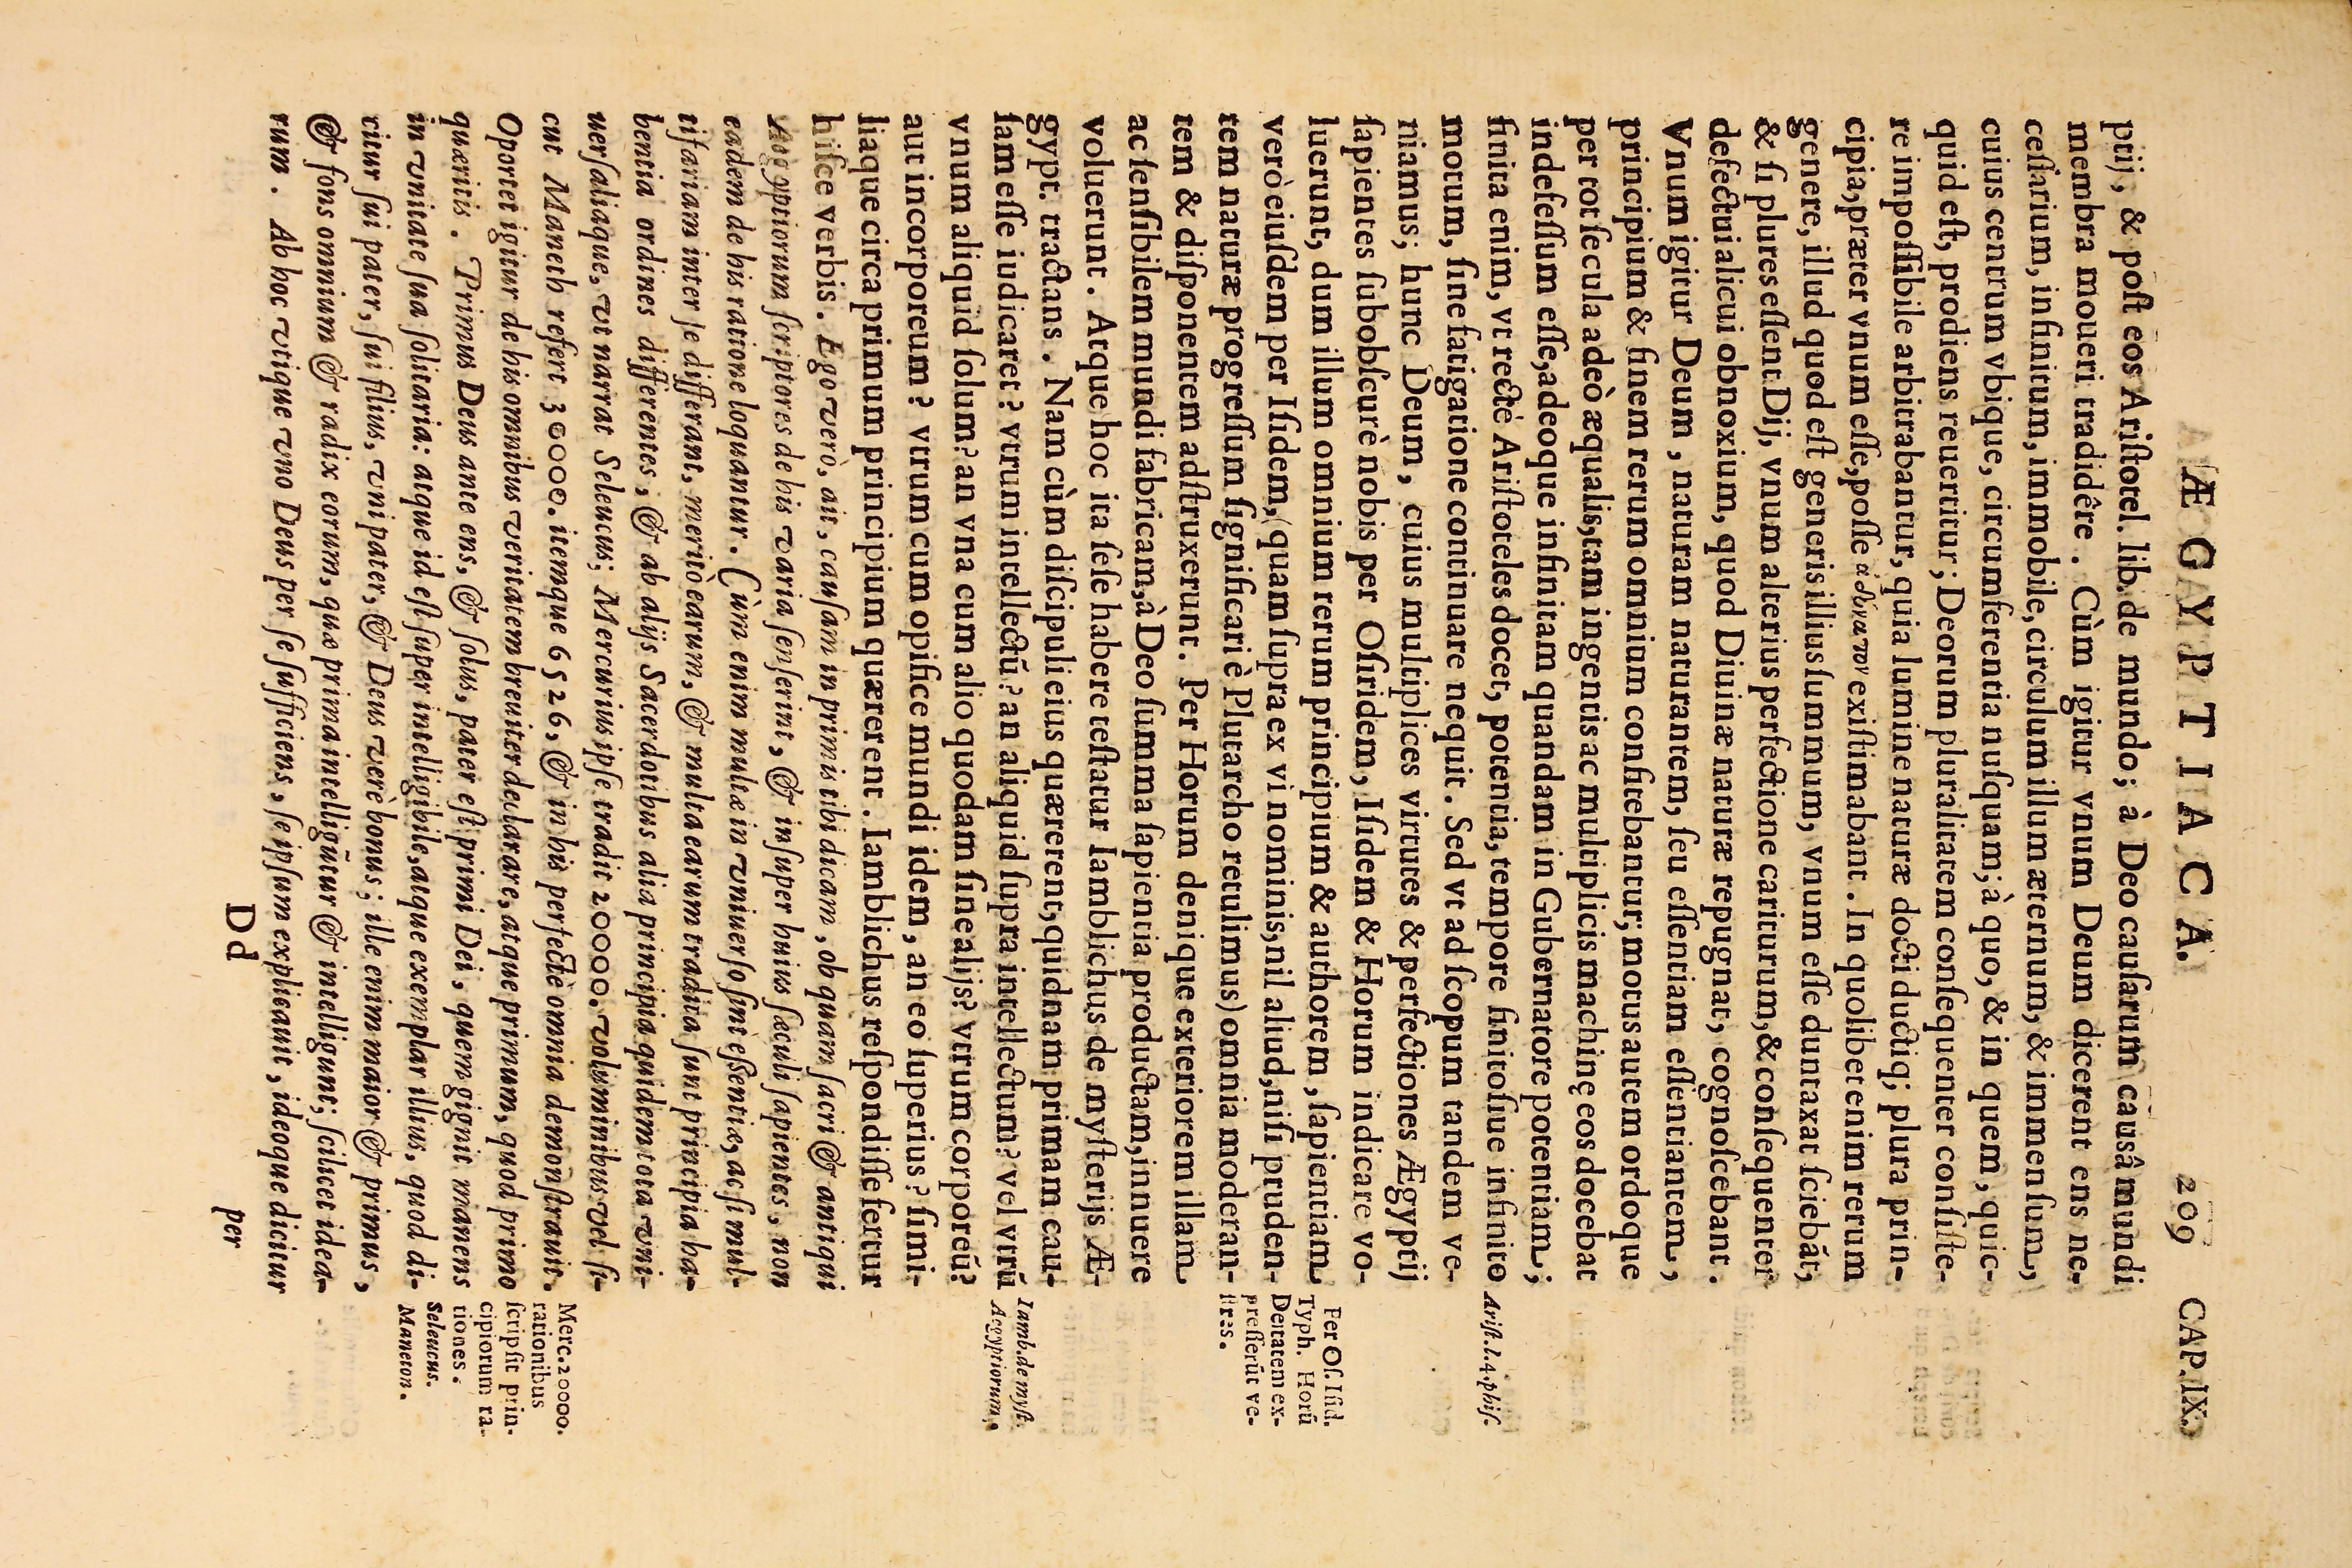 ÆGYPTIACA. 209 CAP. IX.
ptij, & poſt eos Ariſtotel. lib. de mundo; à Deo cauſarum causâ mundi
membra moueri tradidêre. Cùm igitur vnum Deum dicerent ens ne-
ceſſarium, infinitum, immobile, circulum illum æternum, & immenſum,
cuius centrum vbique, circumferentia nuſquam; à quo, & in quem, quic-
quid eſt, prodiens reuertitur; Deorum pluralitatem conſequenter conſiſte-
re impoſſibile arbitrabantur, quia lumine naturæ docti ductiq; plura prin-
cipia, præter vnum eſſe, poſſe ἀδύνατον exiſtimabant. In quolibet enim rerum
genere, illud quod eſt generis illius ſummum, vnum eſſe duntaxat ſciebāt,
& ſi plures eſſent Dij, vnum alterius perfectione cariturum, & conſequenter
defectui alicui obnoxium, quod Diuinæ naturæ repugnat, cognoſcebant.
Vnum igitur Deum, naturam naturantem, ſeu eſſentiam eſſentiantem,
principium & finem rerum omnium confitebantur; motus autem ordoque
per tot ſecula adeò æqualis, tam ingentis ac multiplicis machinę eos docebat
indefeſſum eſſe, adeoque infinitam quandam in Gubernatore potentiam;
finita enim, vt rectè Ariſtoteles docet, potentia, tempore finitoſiue infinito
motum, ſine fatigatione continuare nequit. Sed vt ad ſcopum tandem ve-
niamus; hunc Deum, cuius multiplices virtutes & perfectiones Ægyptij
ſapientes ſubobſcurè nobis per Oſiridem, Iſidem & Horum indicare vo-
luerunt, dum illum omnium rerum principium & authorem, ſapientiam
verò eiuſdem per Iſidem, (quam ſupra ex vi nominis, nil aliud, niſi pruden-
tem naturæ progreſſum ſignificari è Plutarcho retulimus) omnia moderan-
tem & diſponentem adſtruxerunt. Per Horum denique exteriorem illam
ac ſenſibilem mundi fabricam, à Deo ſumma ſapientia productam, innuere
voluerunt. Atque hoc ita ſeſe habere teſtatur Iamblichus de myſterijs Æ-
gypt. tractans. Nam cùm diſcipuli eius quærerent, quidnam primam cau-
ſam eſſe iudicaret? vtrum intellectū? an aliquid ſupra intellectum? vel vtrū
vnum aliquid ſolum? an vna cum alio quodam ſine alijs? vtrum corporeū?
aut incorporeum? vtrum cum opifice mundi idem, an eo ſuperius? ſimi-
liaque circa primum principium quærerent. Iamblichus reſpondiſſe fertur
hiſce verbis. Ego verò, ait, cauſam in primis tibi dicam, ob quam ſacri & antiqui
Aegyptiorum ſcriptores de his varia ſenſerint, & inſuper huius ſæculi ſapientes, non
eadem de his ratione loquantur. Cùm enim multæ in vniuerſo ſint eſſentiæ, ac ſi mul-
tifariam inter ſe differant, meritò earum, & multa earum tradita ſunt principia ha-
bentia ordines differentes, & ab alijs Sacerdotibus alia principia quidem tota vni-
uerſaliaque, vt narrat Seleucus; Mercurius ipſe tradit 20000. voluminibus vel ſi-
cut Maneth refert 30000. itemque 6526, & in his perfectè omnia demonſtrauit.
Oportet igitur de his omnibus veritatem breuiter declarare, atque primum, quod primo
quæritis. Primus Deus ante ens, & ſolus, pater eſt primi Dei, quem gignit manens
in vnitate ſua ſolitaria: atque id eſt ſuper intelligibile, atque exemplar illius, quod di-
citur ſui pater, ſui filius, vni pater, & Deus verè bonus; ille enim maior & primus,
& fons omnium & radix eorum, quæ prima intelligūtur & intelligunt; ſcilicet idea-
rum. Ab hoc vtique vno Deus per ſe ſufficiens, ſe ipſum explieauit, ideoque dicitur
Dd per
Ariſt. l. 4. phiſ.
Per Oſ. Iſid.
Typh. Horū
Deitatem ex-
preſſerūt ve-
teres.
Iamb. de myſt.
Aegyptiorum.
Merc. 20000.
rationibus
ſcripſit prin-
cipiorum ra-
tiones.
Seleucus.
Maneton.